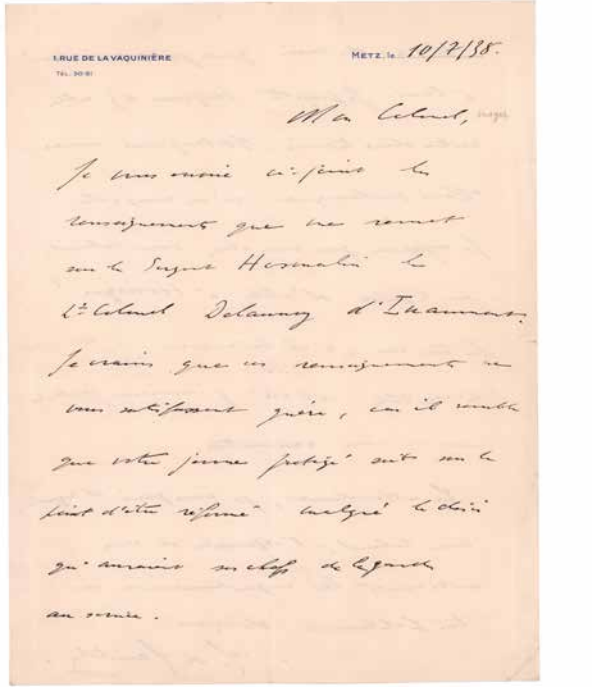 1. RUE DE LA VAQUINIÈRE
TEL. 30-81
METZ, le 10/7/38.
Mon Colonel,
Je vous envoie ci-joint les
renseignements que me remet
sur le Sergent le
Lt Colonel Delaunay d'
Je crains que ces renseignements ne
vous satisfassent guère, car il semble
que votre jeune protégé soit sur le
point d'être réformé malgré le désir
qu'auraient ses chefs de le garder
au service.